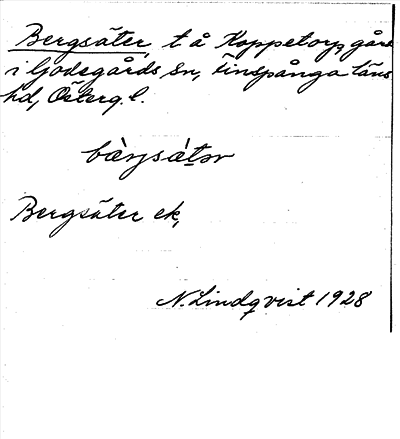 Bergsäter, t å Koppetorp, gård
i Godegårds sn, Finspånga läns
hd, Österg. l.
bæ̀rjsǽtər
Bergsäter ek,
N. Lindqvist 1928